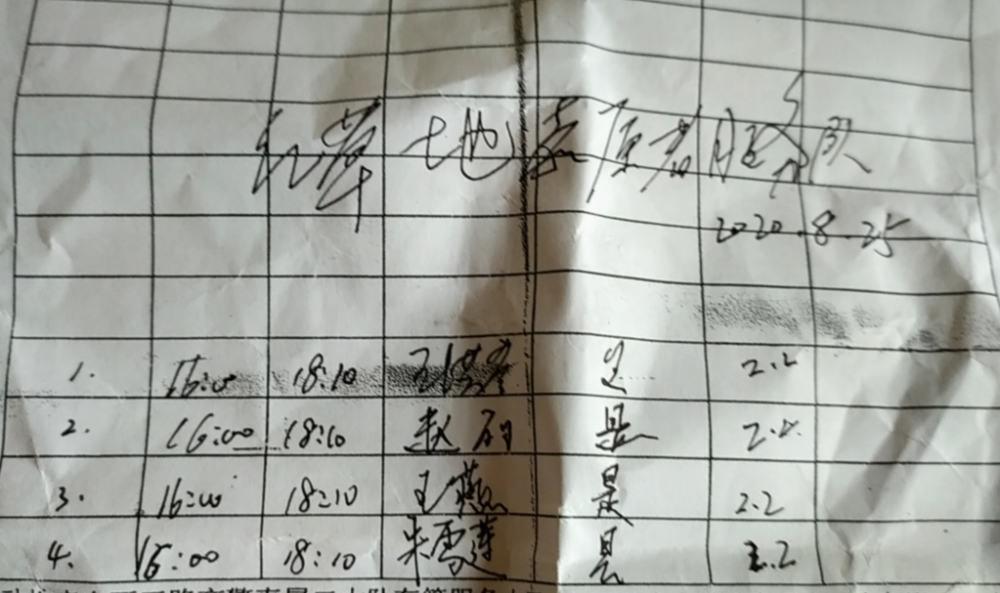 红草地志愿者服务队
2020.8.25
1. 16:00 18:10 是 2.2
2. 16:00 18:10 赵 是 2.2
3. 16:00 18:10 王燕 是 2.2
4. 16:00 18:10 朱雪莲 是 2.2